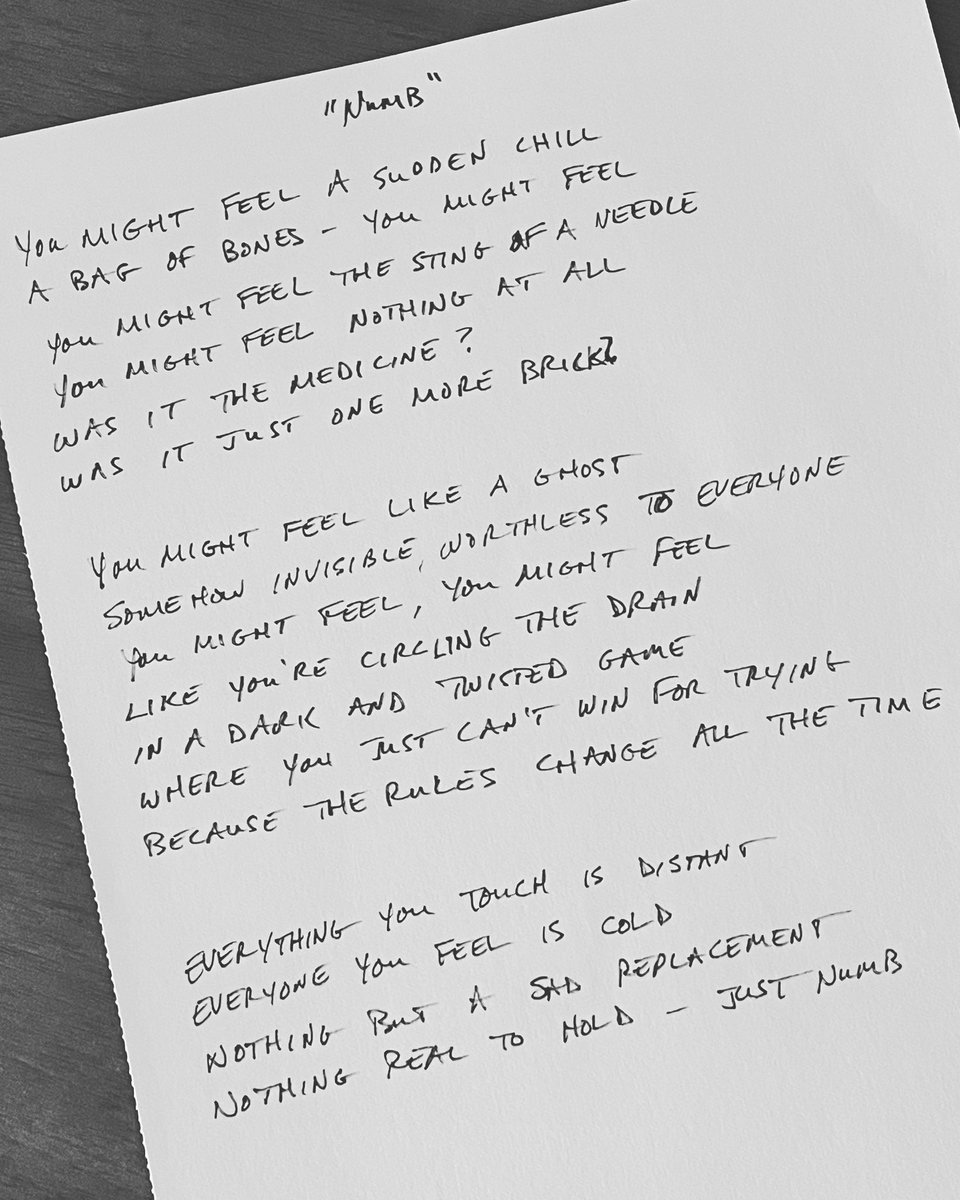 "NUMB"
YOU MIGHT FEEL A SUDDEN CHILL
A BAG OF BONES - YOU MIGHT FEEL
YOU MIGHT FEEL THE STING OF A NEEDLE
YOU MIGHT FEEL NOTHING AT ALL
WAS IT THE MEDICINE?
WAS IT JUST ONE MORE BRICK?
YOU MIGHT FEEL LIKE A GHOST
SOMEHOW INVISIBLE, WORTHLESS TO EVERYONE
YOU MIGHT FEEL, YOU MIGHT FEEL
LIKE YOU'RE CIRCLING THE DRAIN
IN A DARK AND TWISTED GAME
WHERE YOU JUST CAN'T WIN FOR TRYING
BECAUSE THE RULES CHANGE ALL THE TIME
EVERYTHING YOU TOUCH IS DISTANT
EVERYONE YOU FEEL IS COLD
NOTHING BUT A SAD REPLACEMENT
NOTHING REAL TO HOLD - JUST NUMB